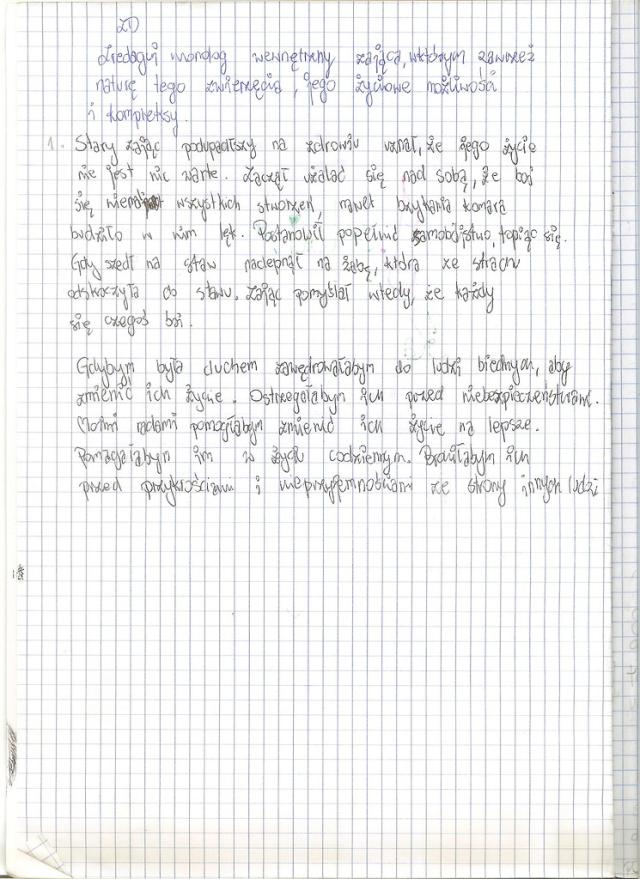 ZD
Zredaguj monolog wewnętrzny zająca, w którym zawrzesz
naturę tego zwierzęcia, jego życiowe możliwości
i kompleksy.
1. Stary zając podupadłszy na zdrowiu uznał, że jego życie
nie jest nic warte. Zaczął użalać się nad sobą, że boi
się wszystkich stworzeń, nawet bzykania komara
budziło w nim lęk. Postanowił popełnić samobójstwo, topiąc się.
Gdy szedł na staw nadepnął na żabę, która ze strachu
odskoczyła do stawu. Zając pomyślał wtedy, że każdy
się czegoś boi.
Gdybym była duchem zawędrowałabym do ludzi biednych, aby
zmienić ich życie. Ostrzegałabym ich przed niebezpieczeństwami.
Moimi radami pomogłabym zmienić ich życie na lepsze.
Pomagałabym im w życiu codziennym. Broniłabym ich
przed przykrościami i nieprzyjemnościami ze strony innych ludzi